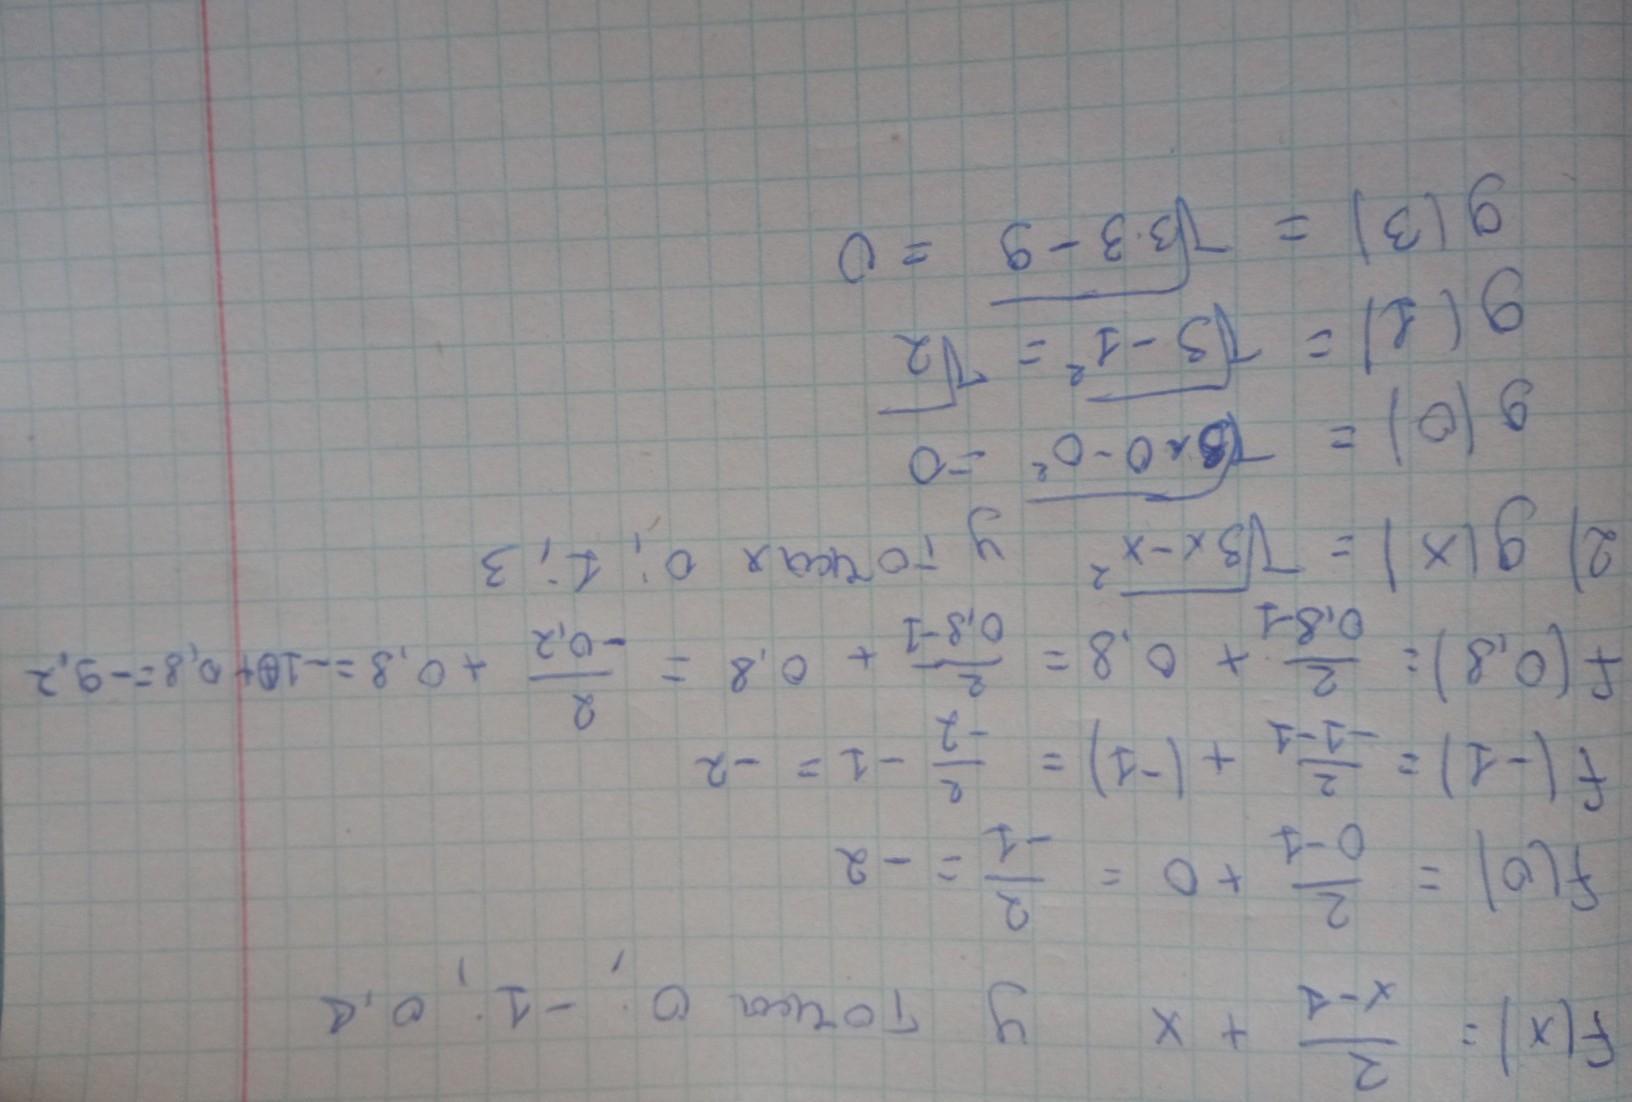 f(x) = 2/(x-1) + x у точка 0; -1; 0,2
f(0) = 2/(0-1) + 0 = 2/(-1) = -2
f(-1) = 2/(-1-1) + (-1) = 2/(-2) - 1 = -2
f(0,8) = 2/(0,8-1) + 0,8 = 2/(0,8-1) + 0,8 = 2/(-0,2) + 0,8 = -10+0,8 = -9,2
2) g(x) = √(3x-x²) у точках 0; 1; 3
g(0) = √(3×0-0²) = 0
g(1) = √(3-1²) = √2
g(3) = √(3·3-9) = 0